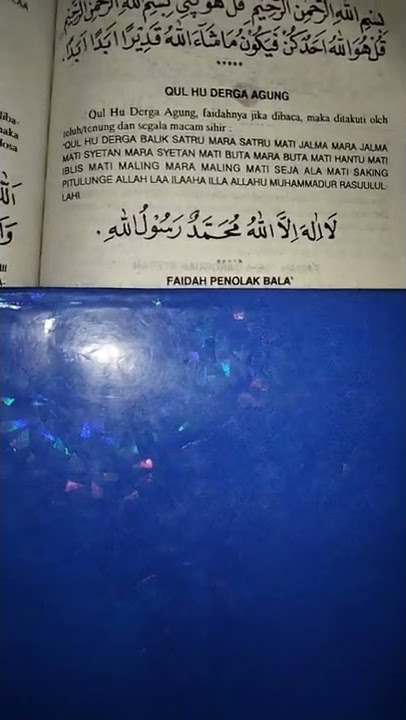 بِسْمِ اللهِ الرَّحْمٰنِ الرَّحِيْمِ قُلْ هُوَ بِسْمِ اللهِ الرَّحْمٰنِ الرَّحِيْمِ
قُلْ هُوَ اللهُ اَحَدٌ كُنْ فَيَكُوْنُ مَاشَآءَ اللهُ قَدِيْرًا اَبَدًا اَبَدًا.
*****
QUL HU DERGA AGUNG
Qul Hu Derga Agung, faidahnya jika dibaca, maka ditakuti olch
tuluh/tenung dan segala macam sihir :
"QUL HU DERGA BALIK SATRU MARA SATRU MATI JALMA MARA JALMA
MATI SYETAN MARA SYETAN MATI BUTA MARA BUTA MATI HANTU MATI
IBLIS MATI MALING MARA MALING MATI SEJA ALA MATI SAKING
PITULUNGE ALLAH LAA ILAAHA ILLA ALLAHU MUHAMMADUR RASUULUL-
LAHI
لَا اِلٰهَ اِلَّا اللهُ مُحَمَّدٌ رَسُوْلُ اللهِ.
*****
FAIDAH PENOLAK BALA'